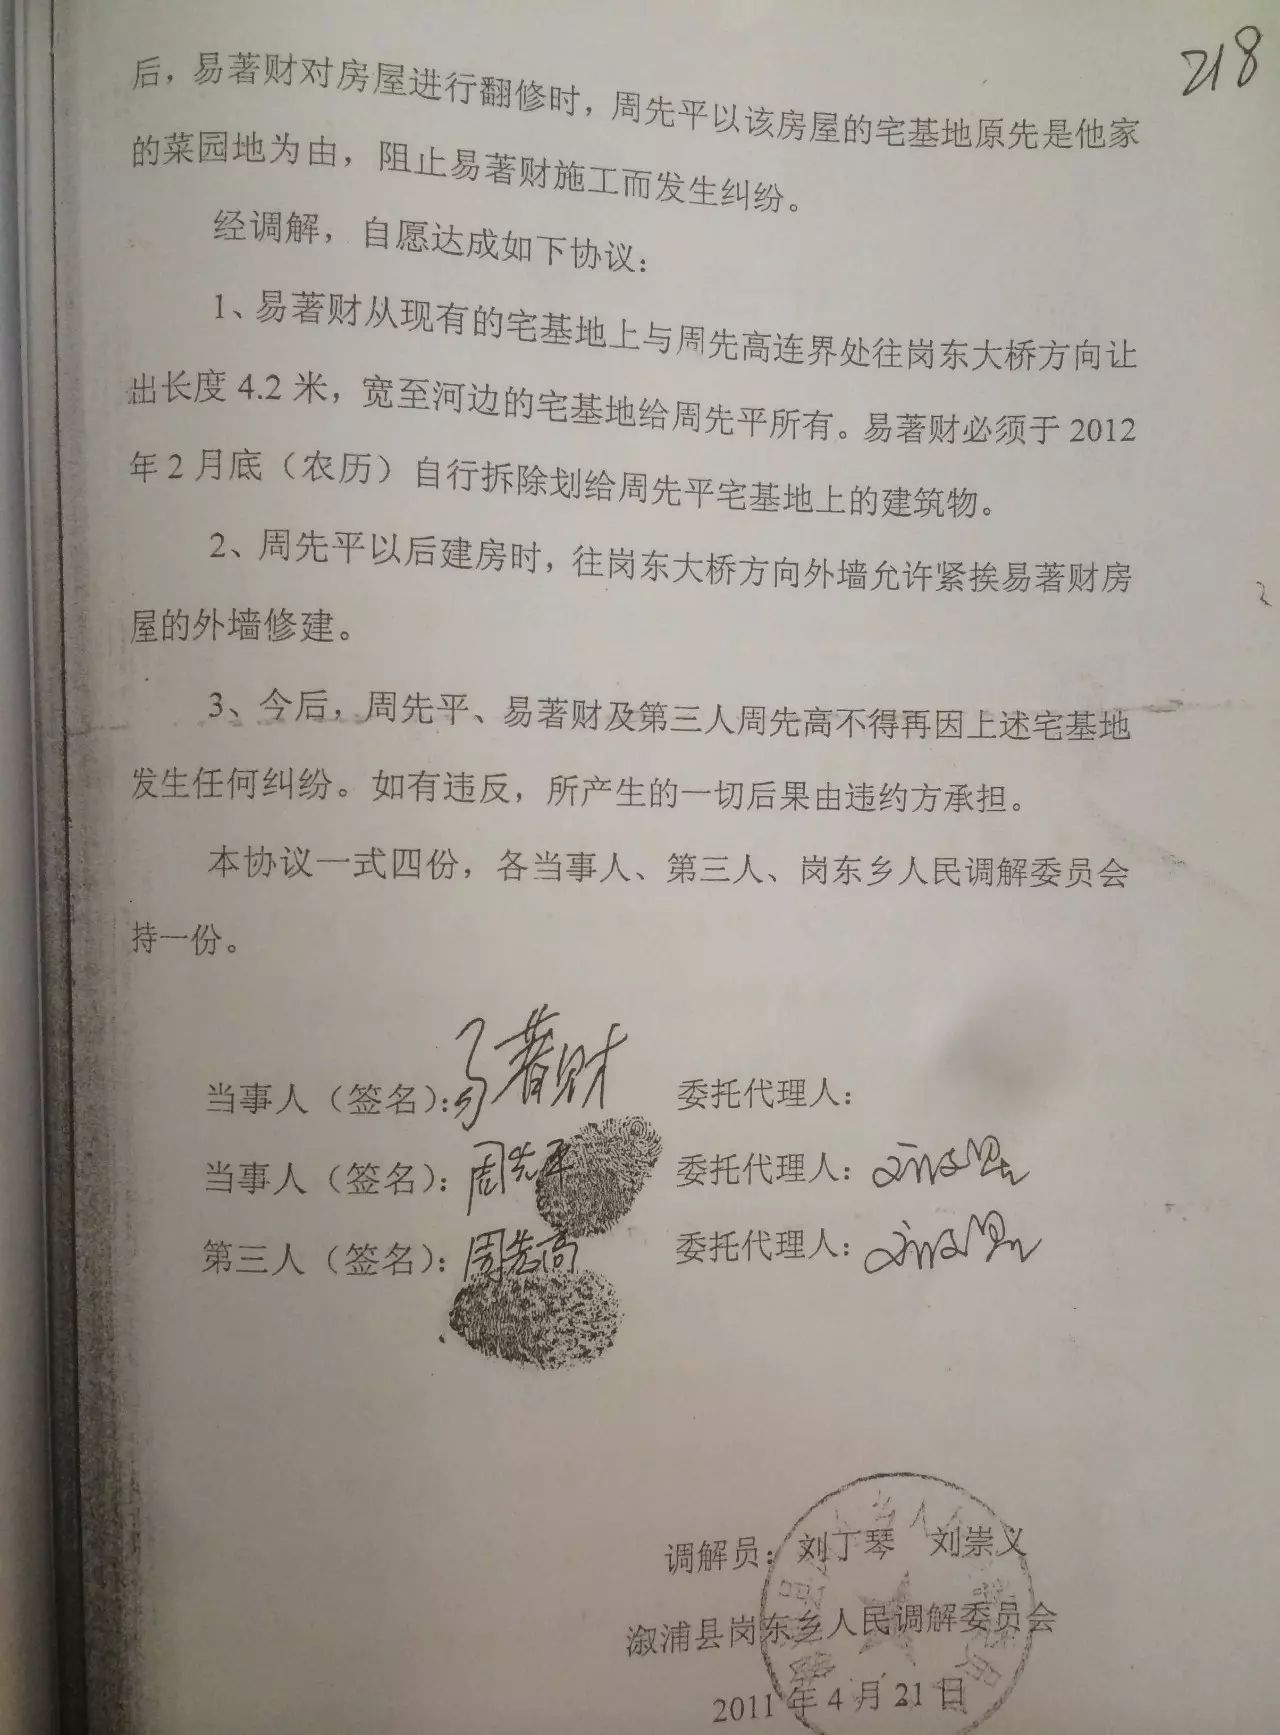 218
后，易著财对房屋进行翻修时，周先平以该房屋的宅基地原先是他家
的菜园地为由，阻止易著财施工而发生纠纷。
经调解，自愿达成如下协议：
1、易著财从现有的宅基地上与周先高连界处往岗东大桥方向让
出长度 4.2 米，宽至河边的宅基地给周先平所有。易著财必须于 2012
年 2 月底（农历）自行拆除划给周先平宅基地上的建筑物。
2、周先平以后建房时，往岗东大桥方向外墙允许紧挨易著财房
屋的外墙修建。
3、今后，周先平、易著财及第三人周先高不得再因上述宅基地
发生任何纠纷。如有违反，所产生的一切后果由违约方承担。
本协议一式四份，各当事人、第三人、岗东乡人民调解委员会
持一份。
当事人（签名）：易著财 委托代理人：
当事人（签名）：周先平 委托代理人：
第三人（签名）：周先高 委托代理人：
调解员：刘丁琴 刘崇义
溆浦县岗东乡人民调解委员会
2011 年 4 月 21 日